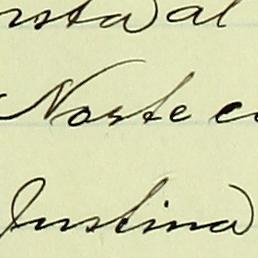 al
Norte
Justina